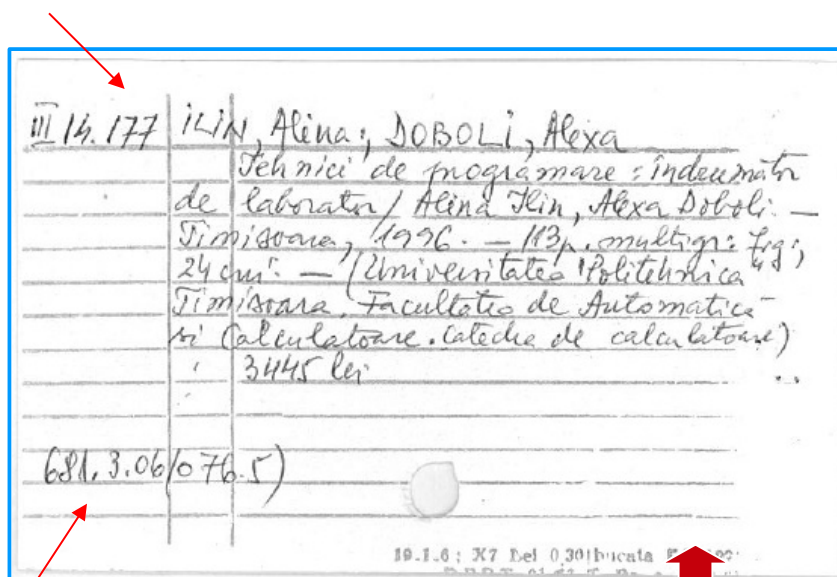 III 14.177 ILIN, Alina; DOBOLI, Alexa
Tehnici de programare : îndrumător
de laborator / Alina Ilin, Alexa Doboli. —
Timisoara, 1996. — 113 p. multigr: fig;
24 cm. — (Universitatea "Politehnica"
Timisoara. Facultatea de Automatica
si Calculatoare. Catedra de calculatoare)
3445 lei
681.3.06(076.5)
19.1.6; X7 Lei 0,30 bucata